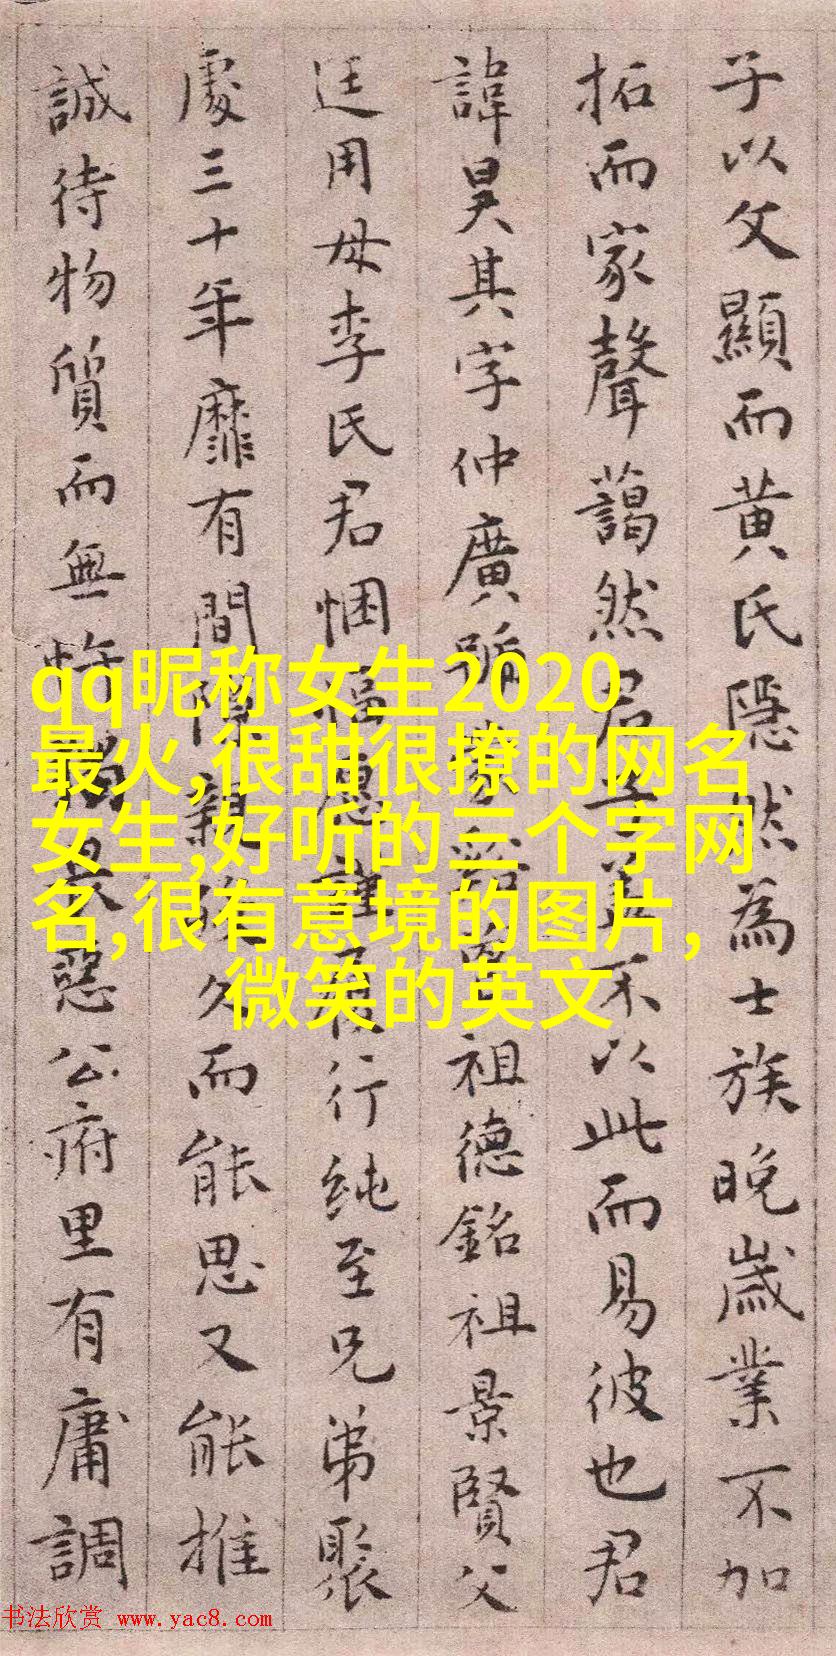 子以父顯而黃氏隱然為士族晚歲業不加
拓而家聲藹然君子蓋不以此而易彼也君
諱昊其字仲廣號 谿 祖德銘祖景賢父
廷用母李氏君悃愊 行純至兄弟聚
處三十年靡有間隙親 久而能思又能推
誠待物質而無 公府里有庸調
qq昵称女生2020
最火,很甜很撩的网名
女生,好听的三个字网
名,很有意境的图片,
微笑的英文
书法欣赏 www.yac8.com